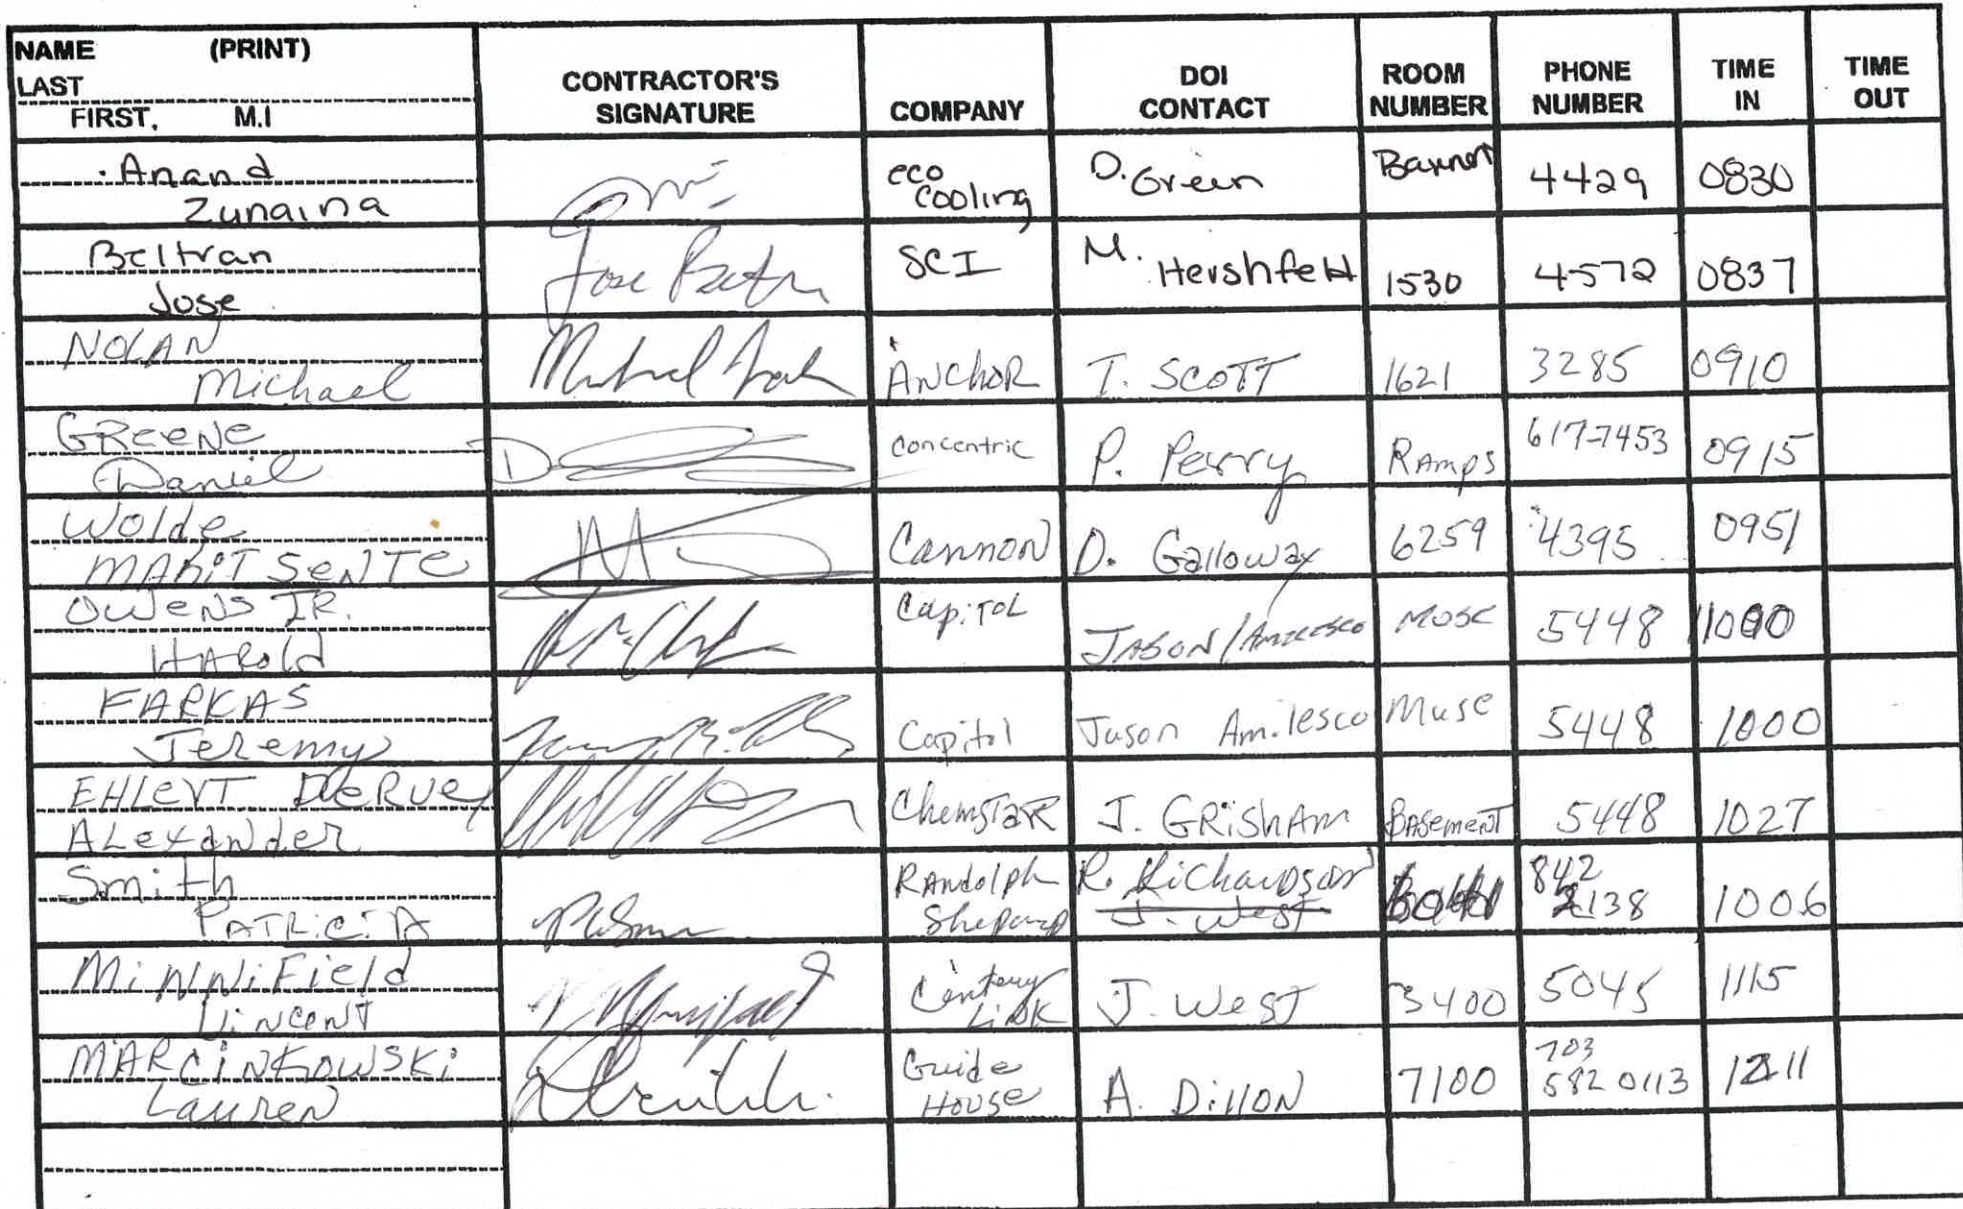 NAME (PRINT)
LAST
FIRST, M.I
CONTRACTOR'S
SIGNATURE
COMPANY
DOI
CONTACT
ROOM
NUMBER
PHONE
NUMBER
TIME
IN
TIME
OUT
Anand
Zunaina
eco
cooling
D. Green
4429
0830
Beltran
Jose
Jose
SCI
M.
Hershfeld
1530
4572
0837
NOLAN
Michael
Michael
ANCHOR
T. SCOTT
1621
3285
0910
GREENE
Daniel
Concentric
P. Perry
RAmps
617-7453
0915
Wolde
Cannon
D. Galloway
6259
4395
0951
OWENS JR.
HAROld
CapiTOL
JASON/
5448
FARKAS
Jeremy
Capitol
Jason Amilesco
Muse
5448
1000
ALexander
ChemSTAR
J. GRiShAm
BAsemenT
5448
1027
Smith
PATRiCiA
RAndolph
R. Richardson
J. West
842
2138
1006
MiNNiField
ViNCeNT
Century
LiNK
J. West
3400
5045
1115
MARCiNKOWSKi
LauReN
Guide
House
A. DillON
7100
703
582 0113
1211